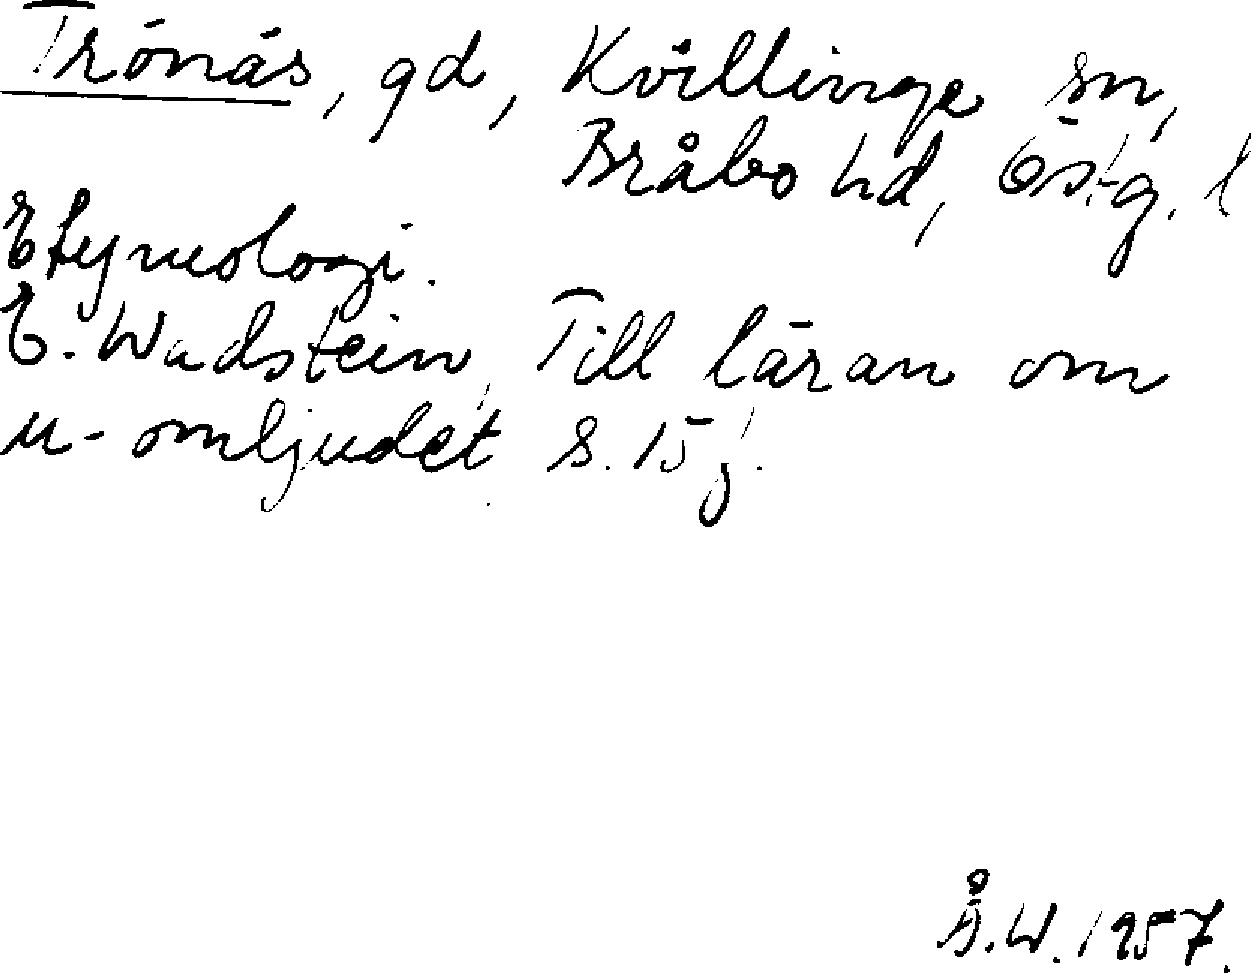 Trönäs, gd, Kvillinge sn,
Bråbo hd, Östg. l
Etymologi.
E. Wadstein, Till läran om
u-omljudet s. 15 f.
Å.W. 1957.